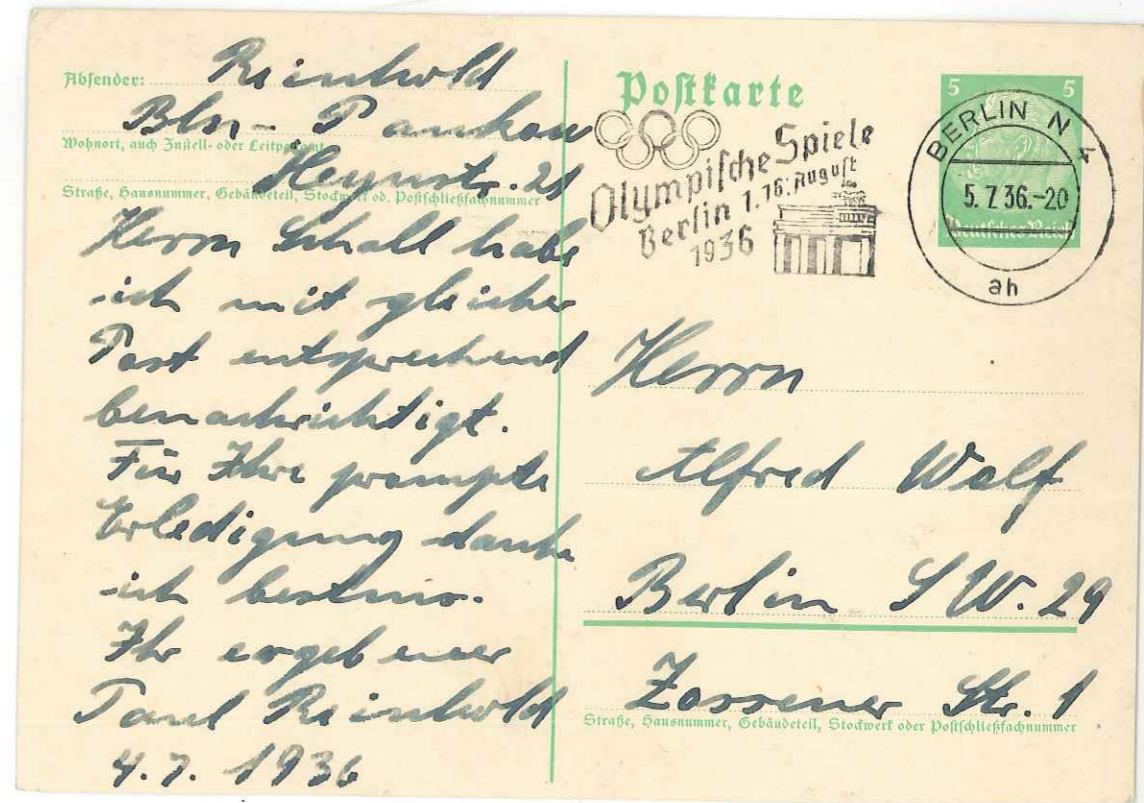 Absender: Reinhold
Bln- Pankow
Wohnort, auch Zustell- oder Leitpostamt
Heynstr. 21
Straße, Hausnummer, Gebäudeteil, Stockwerk od. Postschließfachnummer
Herrn Schall habe
ich mit gleicher
Post entsprechend
benachrichtigt.
Für Ihre prompte
Erledigung danke
ich bestens.
Ihr ergebener
Paul Reinhold
4.7. 1936
Postkarte
Olympische Spiele
Berlin 1.-16. August
1936
5 5
BERLIN N 4
5.7.36.-20
Deutsches Reich
ah
Herrn
Alfred Wolf
Berlin SW. 29
Zossener Str. 1
Straße, Hausnummer, Gebäudeteil, Stockwerk oder Postschließfachnummer